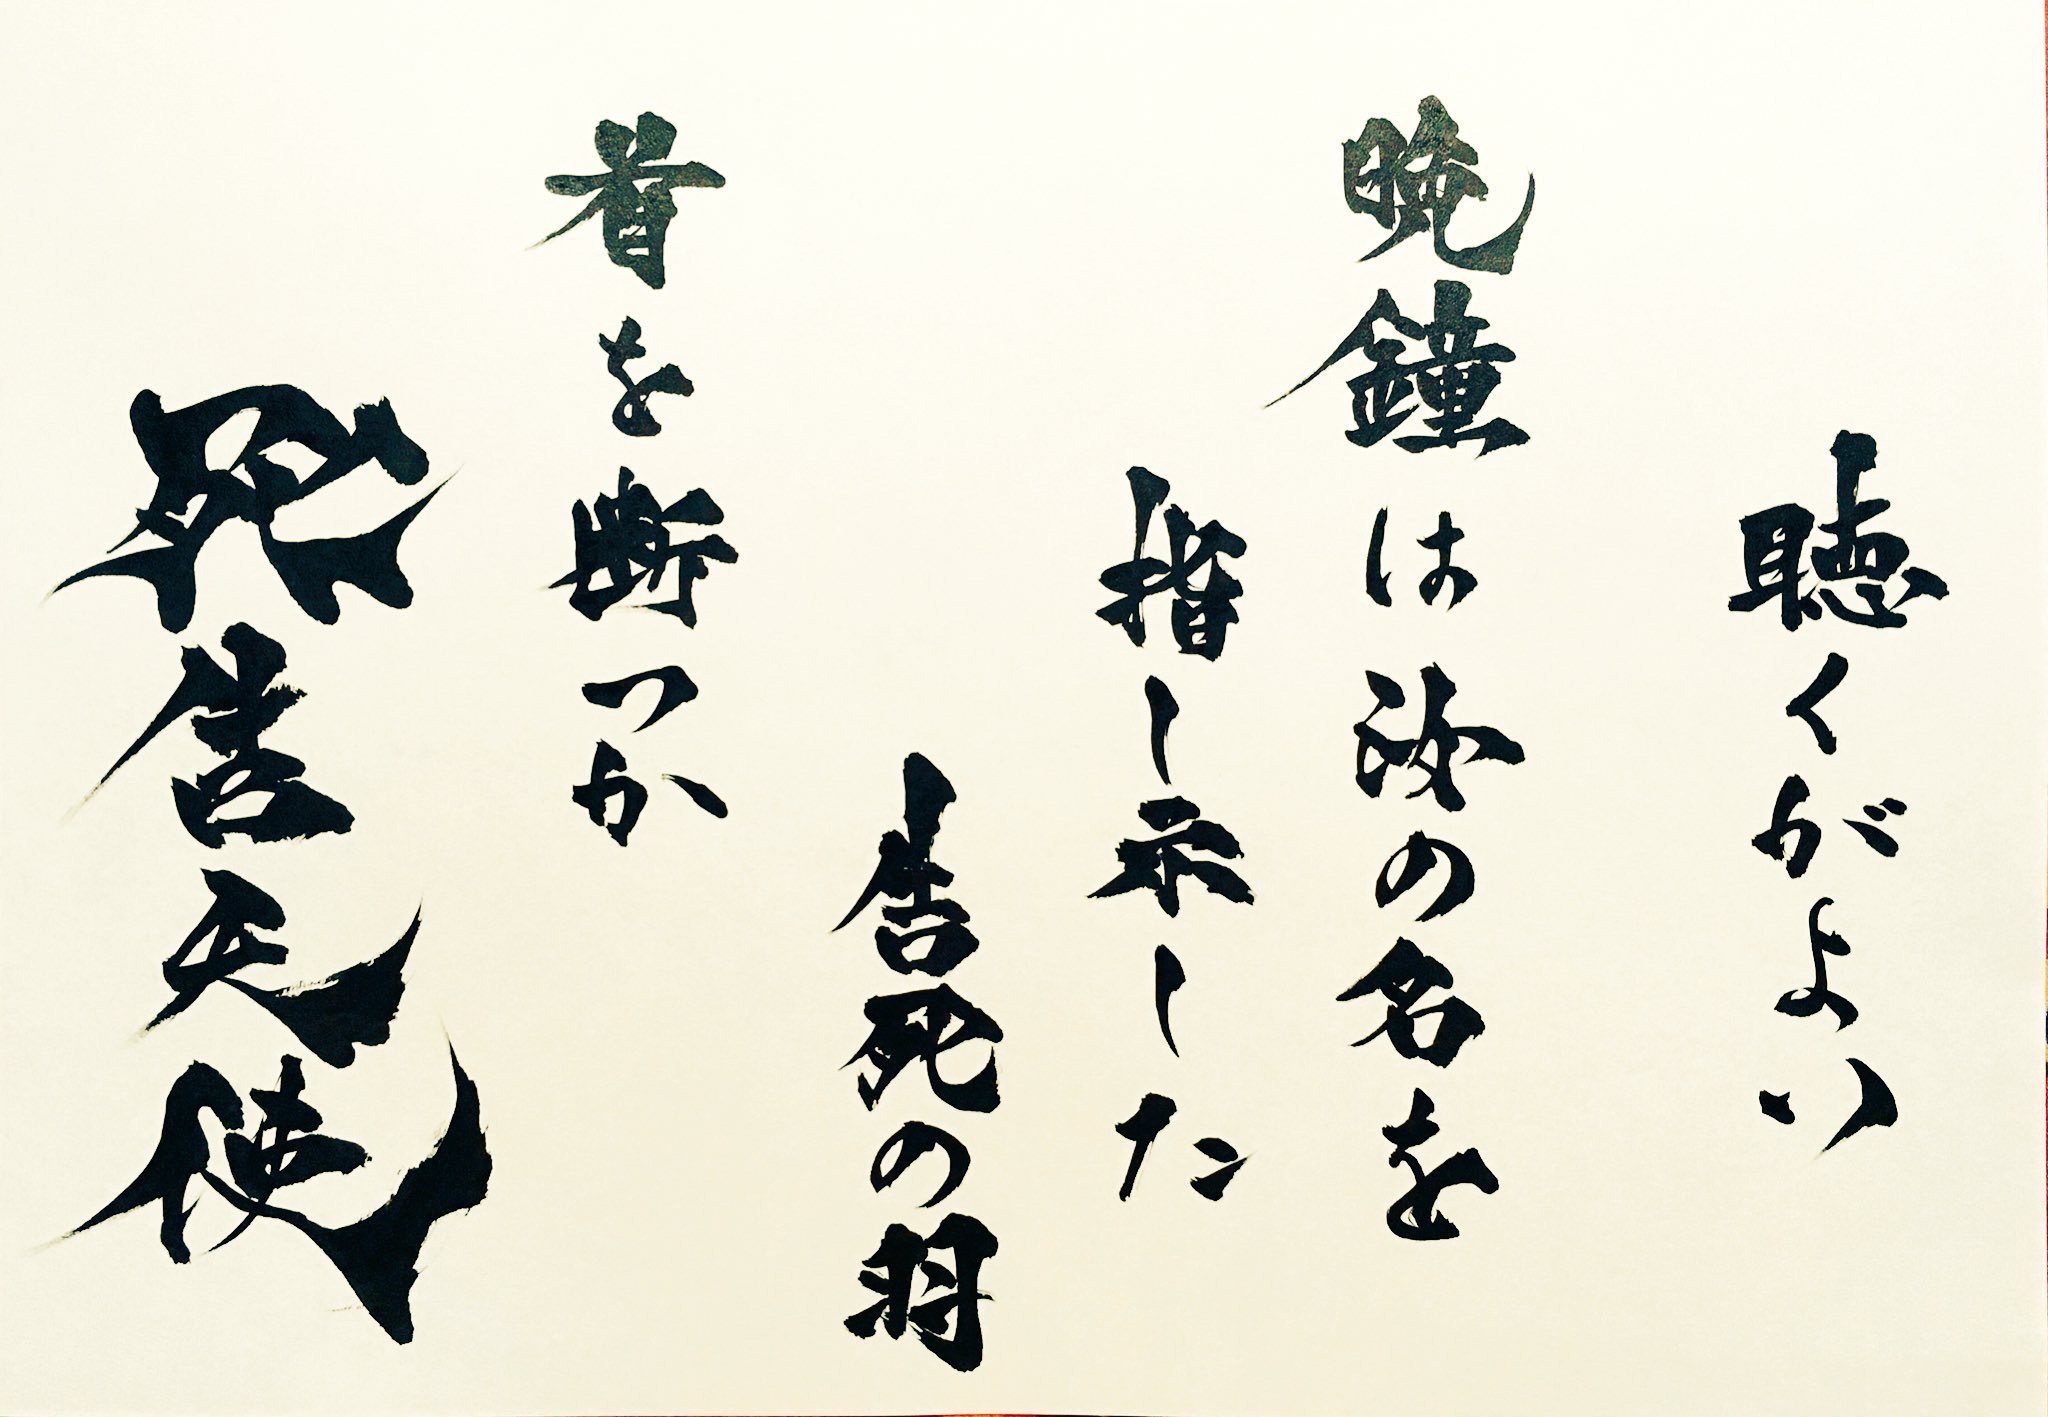 聴くがよい
晩鐘は汝の名を
指し示した
告死の羽
首を断つか
死告天使